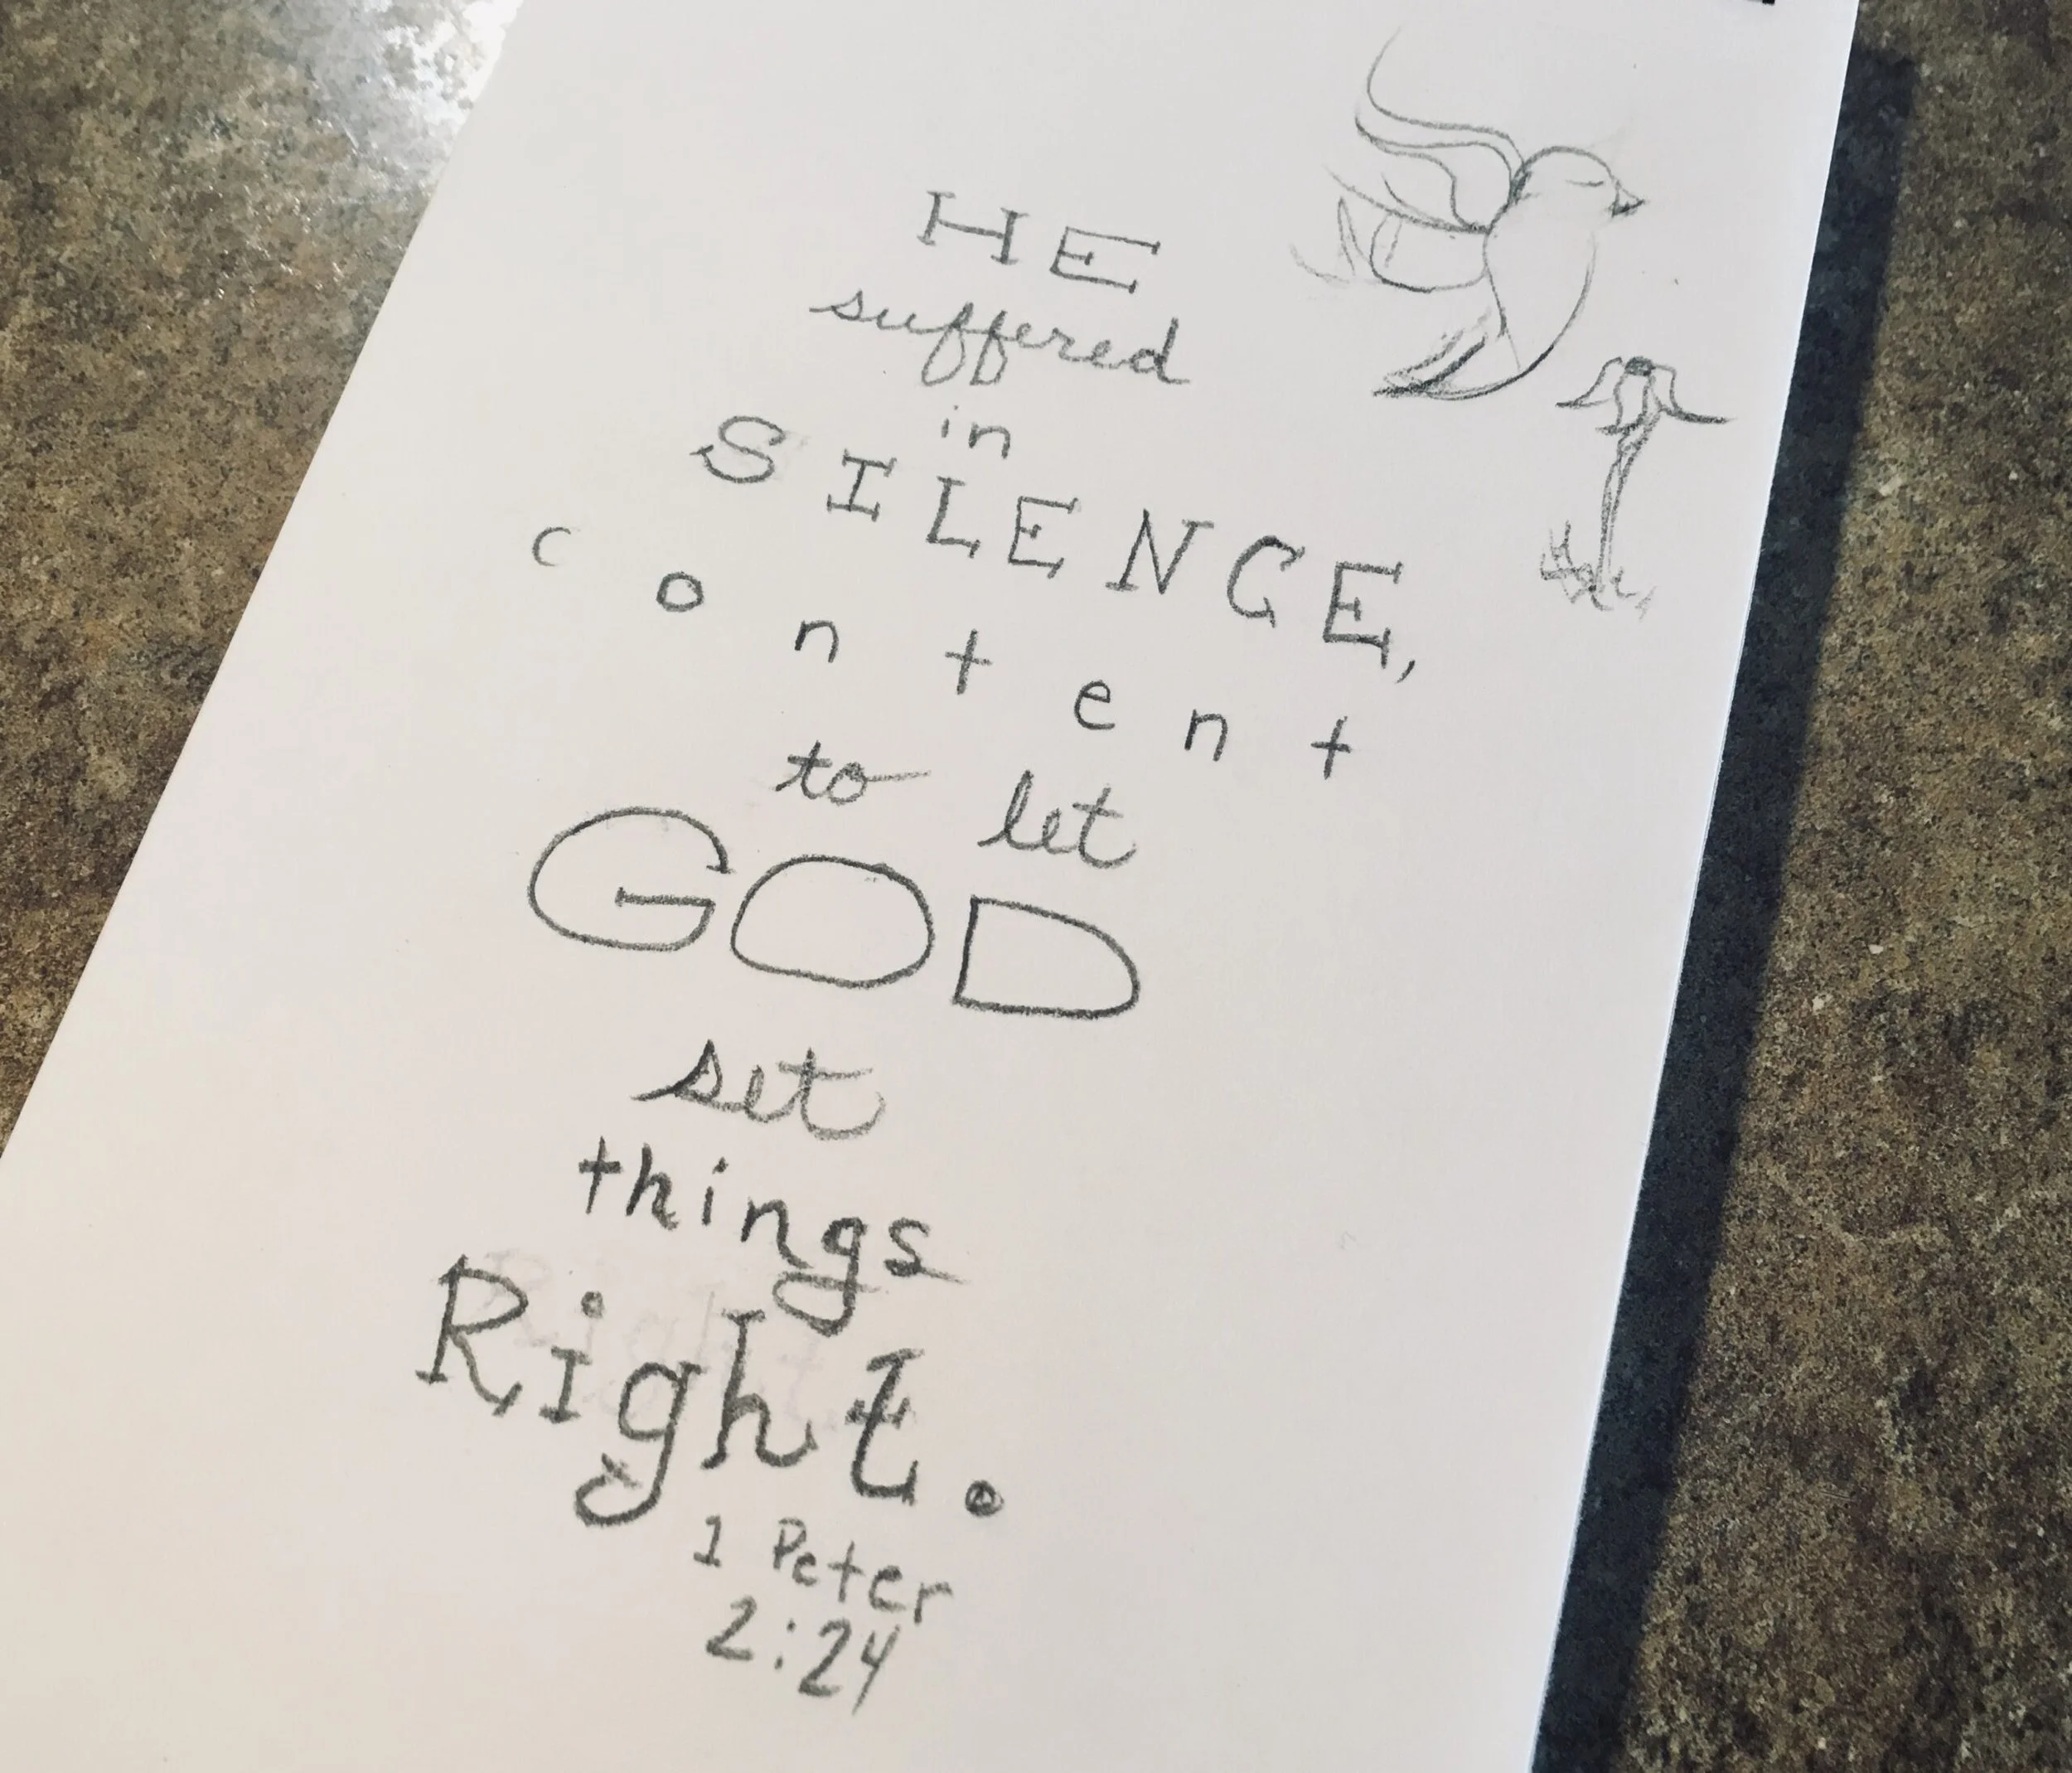 HE
suffered
in
SILENCE,
content
to let
GOD
set
things
Right.
1 Peter
2:24